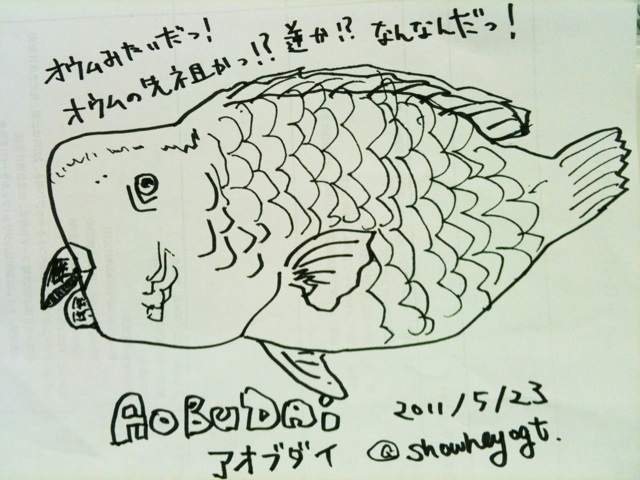 オウムみたいだっ!
オウムの先祖かっ!? 逆か!? なんなんだっ!
AoBuDAi
アオブダイ
2011/5/23
@showheyogt.